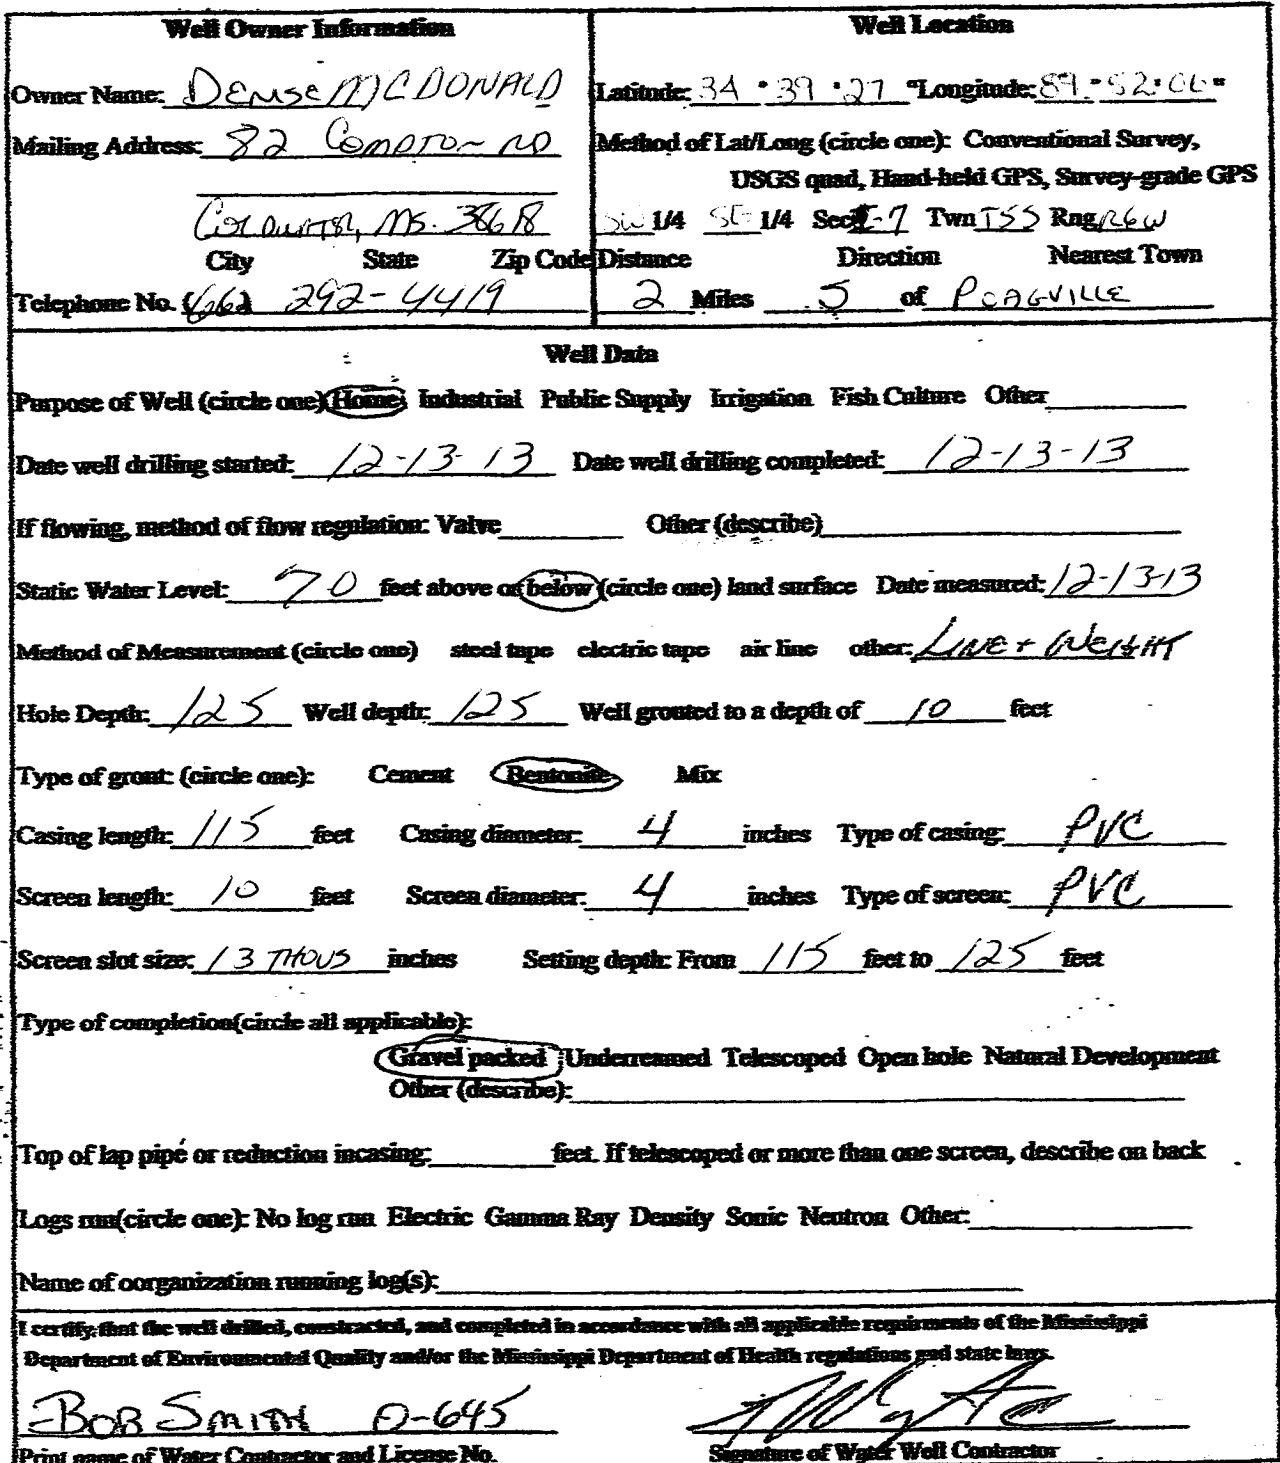 Well Owner Information
Well Location
Owner Name: DENISE MCDONALD
Latitude: 34 ° 39 ' 27 "Longitude: 89 ° 52 ' "
Mailing Address: 82 COMPTON RD
Method of Lat/Long (circle one): Conventional Survey,
USGS quad, Hand-held GPS, Survey-grade GPS
COLDWATER, MS. 38618
SW 1/4 SE 1/4 Sec Twn T5S Rng R6W
City State Zip Code
Distance Direction Nearest Town
Telephone No. (662) 292-4419
2 Miles S of POAGVILLE
Well Data
Purpose of Well (circle one) Home Industrial Public Supply Irrigation Fish Culture Other
Date well drilling started: 12-13-13 Date well drilling completed: 12-13-13
If flowing, method of flow regulation: Valve Other (describe)
Static Water Level: 70 feet above or below (circle one) land surface Date measured: 12-13-13
Method of Measurement (circle one) steel tape electric tape air line other: LINE + WEIGHT
Hole Depth: 125 Well depth: 125 Well grouted to a depth of 10 feet
Type of grout: (circle one): Cement Bentonite Mix
Casing length: 115 feet Casing diameter: 4 inches Type of casing: PVC
Screen length: 10 feet Screen diameter: 4 inches Type of screen: PVC
Screen slot size: 13 THOUS inches Setting depth: From 115 feet to 125 feet
Type of completion(circle all applicable):
Gravel packed Underreamed Telescoped Open hole Natural Development
Other (describe):
Top of lap pipe or reduction incasing: feet. If telescoped or more than one screen, describe on back
Logs run(circle one): No log run Electric Gamma Ray Density Sonic Neutron Other:
Name of oorganization running log(s):
I certify that the well drilled, constracted, and completed in accordance with all applicable requirments of the Mississippi
Department of Environmental Quality and/or the Mississippi Department of Health regulations and state laws.
BOB SMITH 0-645
Print name of Water Contractor and License No.
Signature of Water Well Contractor